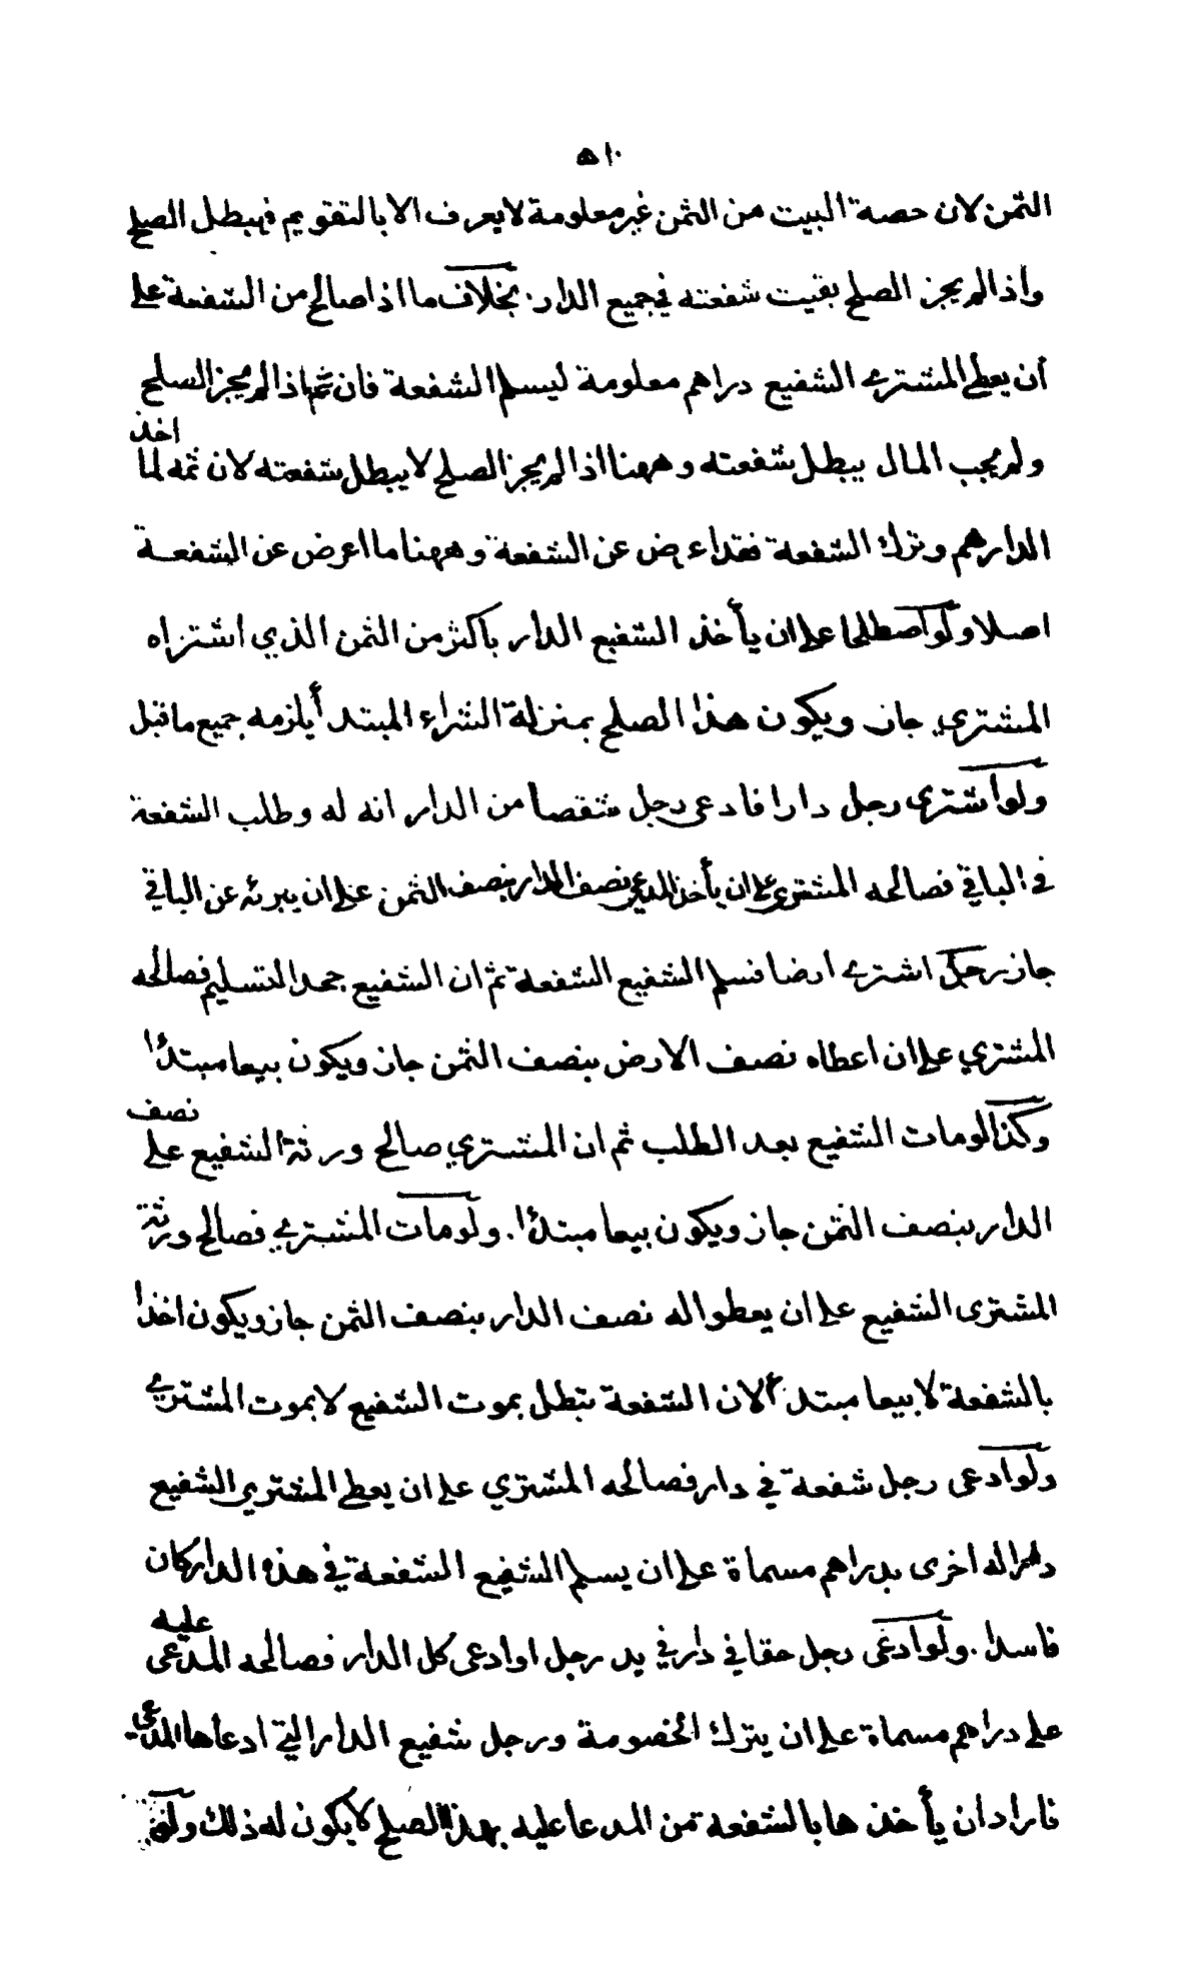 ٥١٠
الثمن لان حصة البيت من الثمن غير معلومة لا يعرف الا بالتقويم فيبطل الصلح
واذا لم يجز الصلح بقيت شفعته في جميع الدار بخلاف ما اذا صالح من الشفعة على
أن يعطى المشترى الشفيع دراهم معلومة ليسلم الشفعة فان ثم اذا لم يجز الصلح
ولم يجب المال يبطل شفعته وههنا اذا لم يجز الصلح لا يبطل شفعته لان ثمه لما اخذ
الدارهم وترك الشفعة فقد اعرض عن الشفعة وههنا ما اعرض عن الشفعة
اصلا ولو اصطلحا على ان يأخذ الشفيع الدار باكثر من الثمن الذي اشتراه
المشتري جاز ويكون هذا الصلح بمنزلة الشراء المبتدأ يلزمه جميع ما قبل
ولو اشترى رجل دارا فادعى رجل شقصا من الدار انه له وطلب الشفعة
في الباقي فصالحه المشترى على ان يأخذ المدعى نصف الدار بنصف الثمن على ان يبرئه عن الباقي
جاز رجل اشترى ارضا فسلم الشفيع الشفعة ثم ان الشفيع جحد التسليم فصالحه
المشتري على ان اعطاه نصف الارض بنصف الثمن جاز ويكون بيعا مبتدئا
وكذا لو مات الشفيع بعد الطلب ثم ان المشتري صالح ورثة الشفيع على نصف
الدار بنصف الثمن جاز ويكون بيعا مبتدئا. ولو مات المشتري فصالح ورثة
المشترى الشفيع على ان يعطوا له نصف الدار بنصف الثمن جاز ويكون اخذا
بالشفعة لا بيعا مبتدءا لان الشفعة تبطل بموت الشفيع لا بموت المشتري
ولو ادعى رجل شفعة في دار فصالحه المشتري على ان يعطى المشتري الشفيع
دارا له اخرى بدراهم مسماة على ان يسلم الشفيع الشفعة في هذه الدار كان
فاسدا. ولو ادعى رجل حقا في دار في يد رجل او ادعى كل الدار فصالحه المدعى عليه
على دراهم مسماة على ان يترك الخصومة ورجل شفيع الدار التي ادعاها المدعى
فاراد ان يأخذها بالشفعة من المدعا عليه بهذا الصلح لا يكون له ذلك